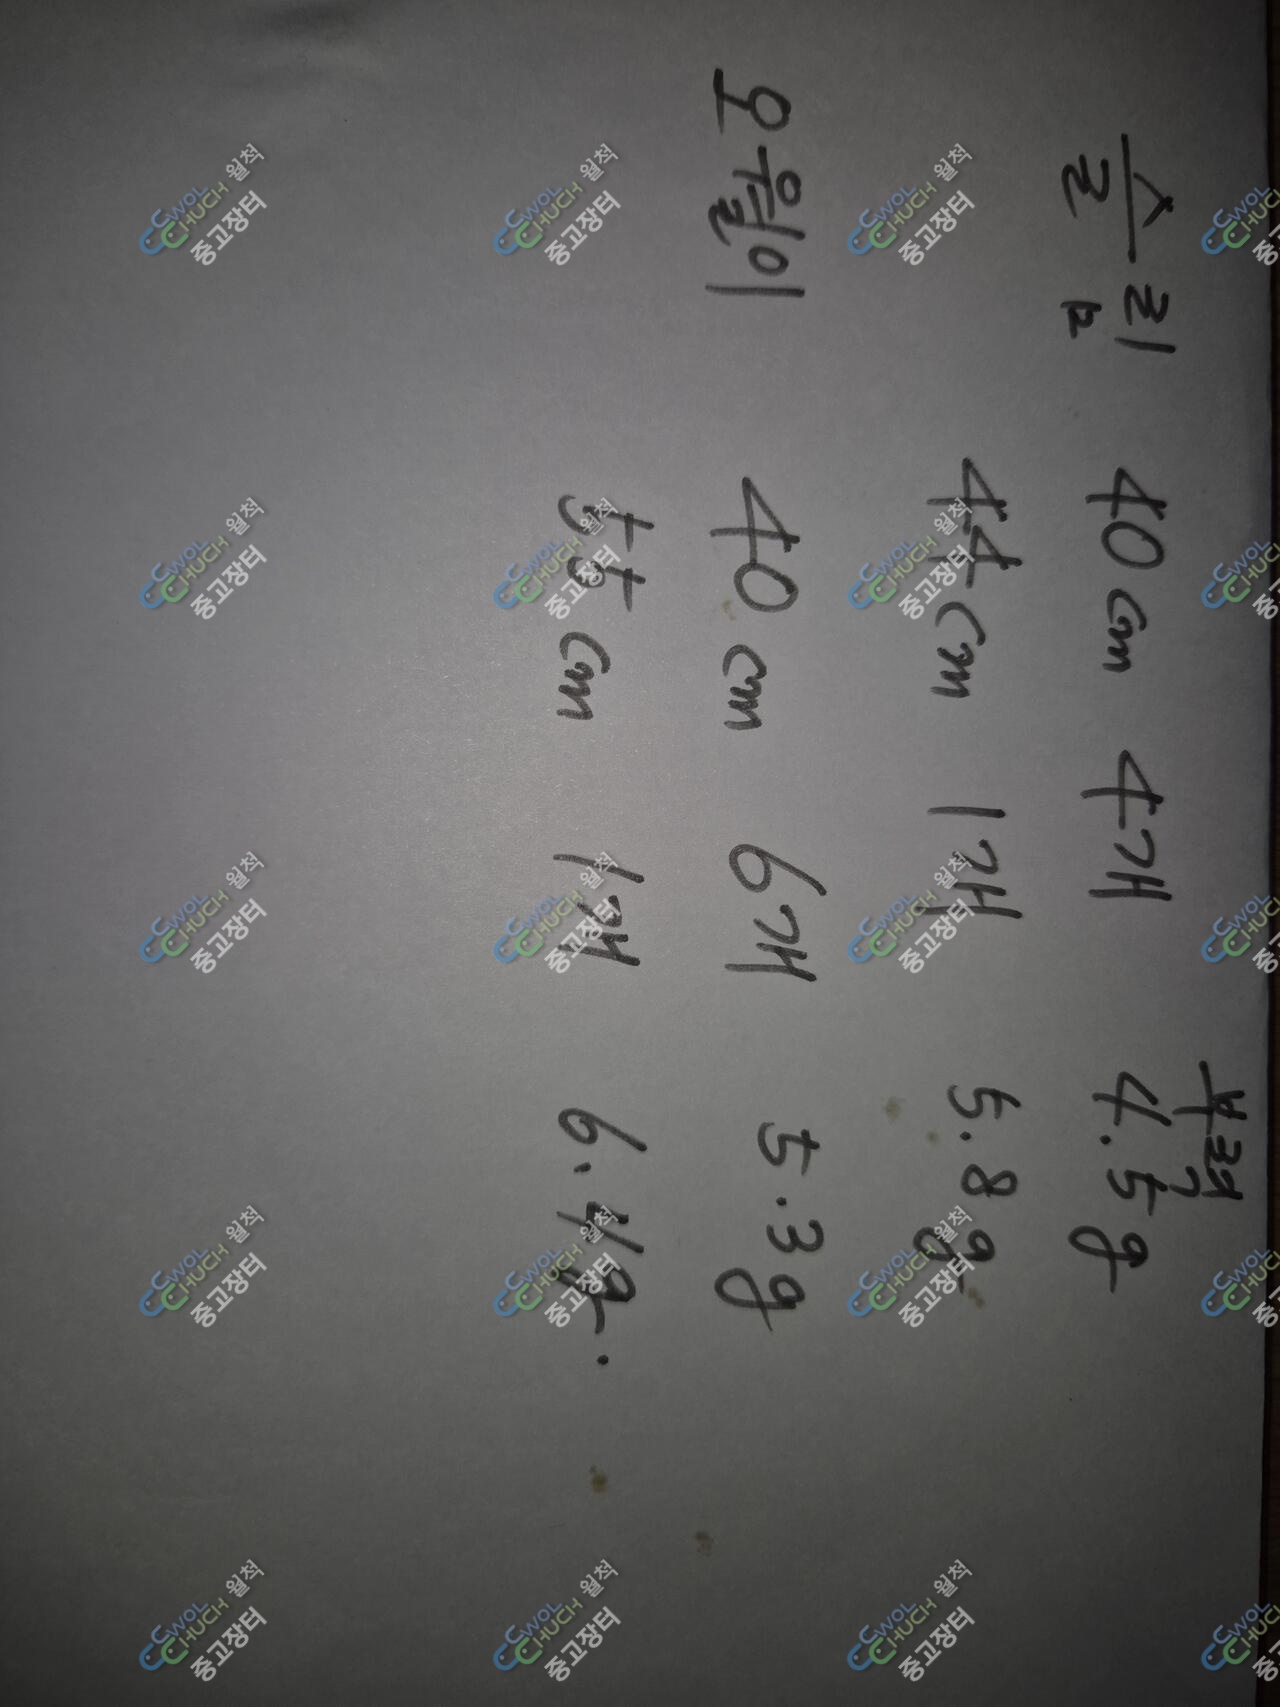 부력
슬림 40cm 4개 4.5g
44cm 1개 5.8g
오월이 40cm 6개 5.3g
55cm 1개 6.4g.
CWOL CHUCH 월척 중고장터